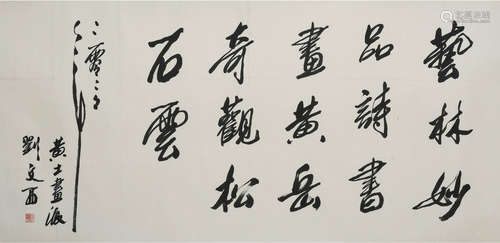 藝林妙
品詩書
畫黃岳
奇觀松
石雲
二零二年
黃土畫派
劉文西